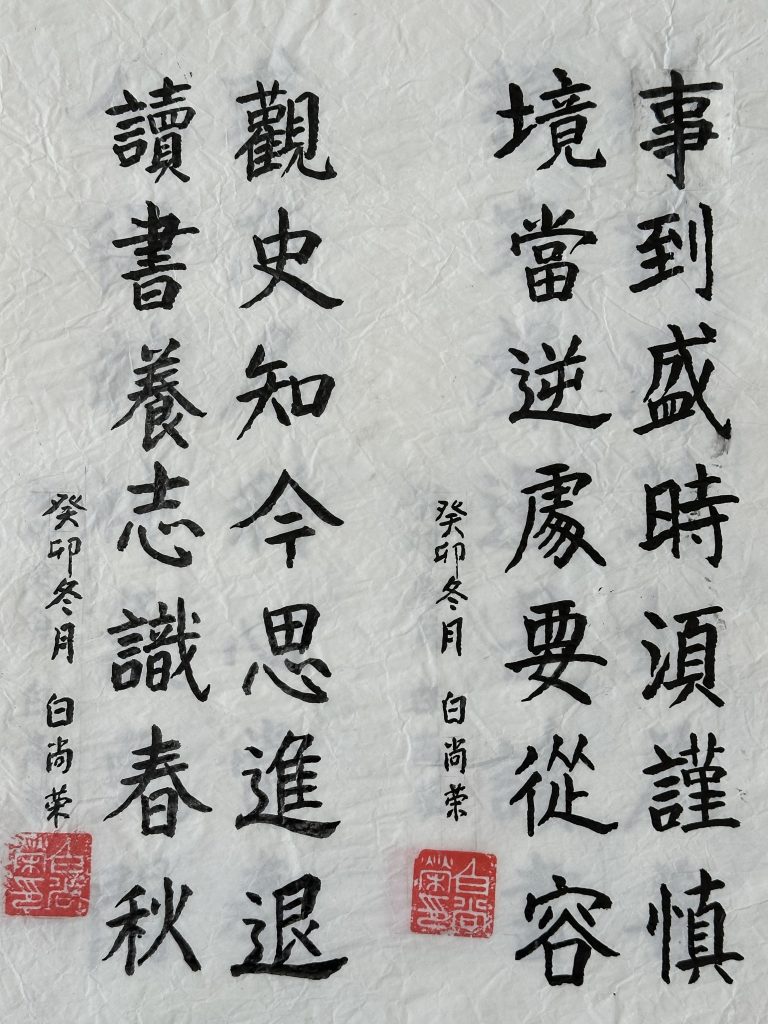 事到盛時須謹慎
境當逆處要從容
癸卯冬月 白尚荣
白尚荣印
觀史知今思進退
讀書養志識春秋
癸卯冬月 白尚荣
白尚荣印